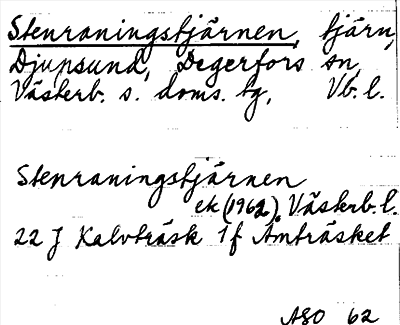 Stenraningstjärnen, tjärn,
Djupsund, Degerfors sn,
Västerb. s. doms. tg, Vb. l.
Stenraningstjärnen
ek (1962), Västerb. l.
22 J Kalvträsk 1f Åmträsket
ASO 62